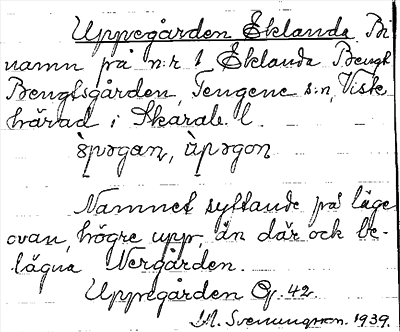 Uppegården Eklanda Bi
namn på n:r 1 Eklanda Bengt
Bengtsgården, Tengene s:n, Viske
härad i Skarab. l.
Namnet syftande på läge
ovan, högre upp, än där ock be-
lägna Nergården.
Uppegården Gj. 42.
Svenungson. 1939.